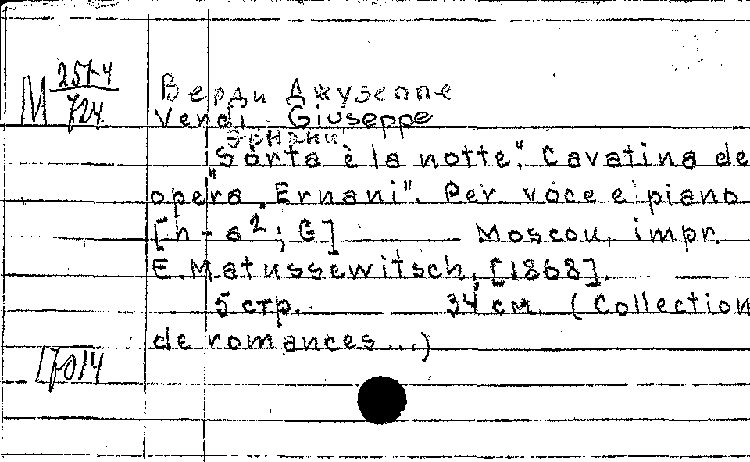 М 257-4
724
Верди Джузеппе
Verdi Giuseppe
Эрнани
"Sorta è la notte", Cavatina de
opera "Ernani". Per voce e piano
[h - a²; G] Moscou, impr.
E. Matussewitsch, [1868].
5 стр. 34 см. (Collection
de romances...)